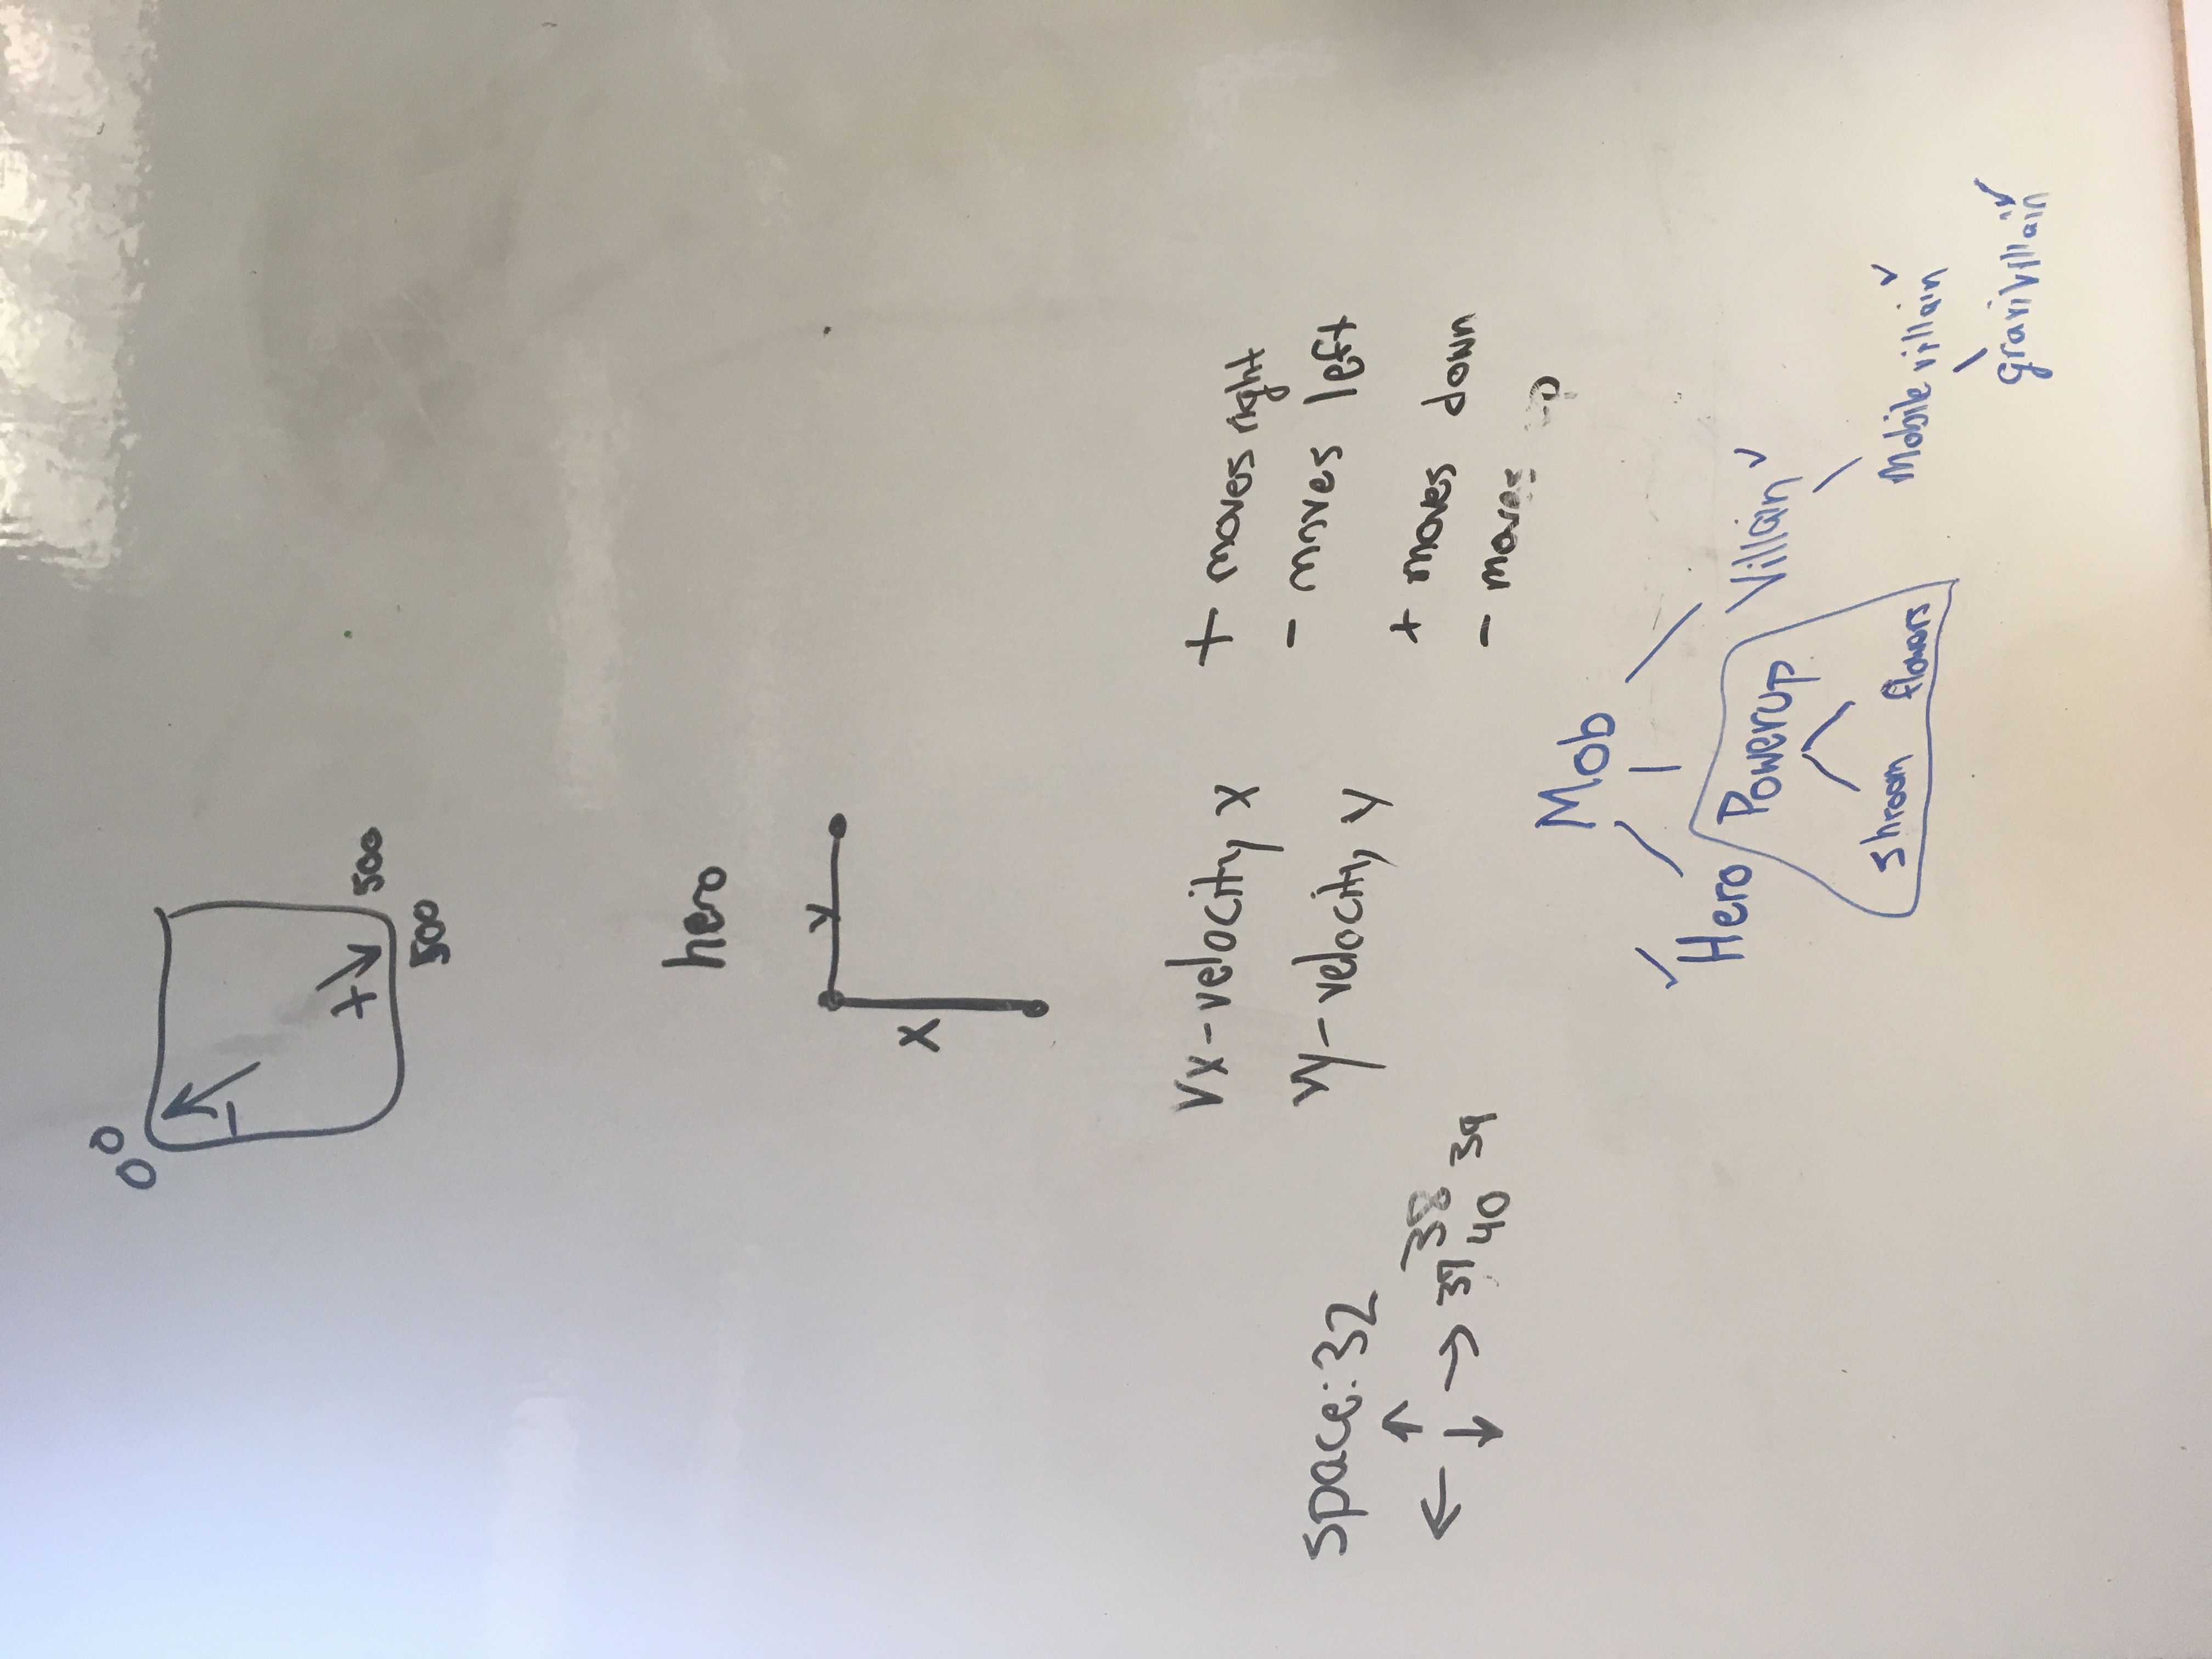 0 0
-
+
500
500
hero
y
x
Vx-velocity x
+ moves right
- moves left
vy-velocity y
+ moves down
- moves up
space: 32
↑
← ↓ →
38
37 40 39
Mob
✓ Hero
Powerup
Villain ✓
shroom flowers
Mobile villain ✓
gravivillain ✓